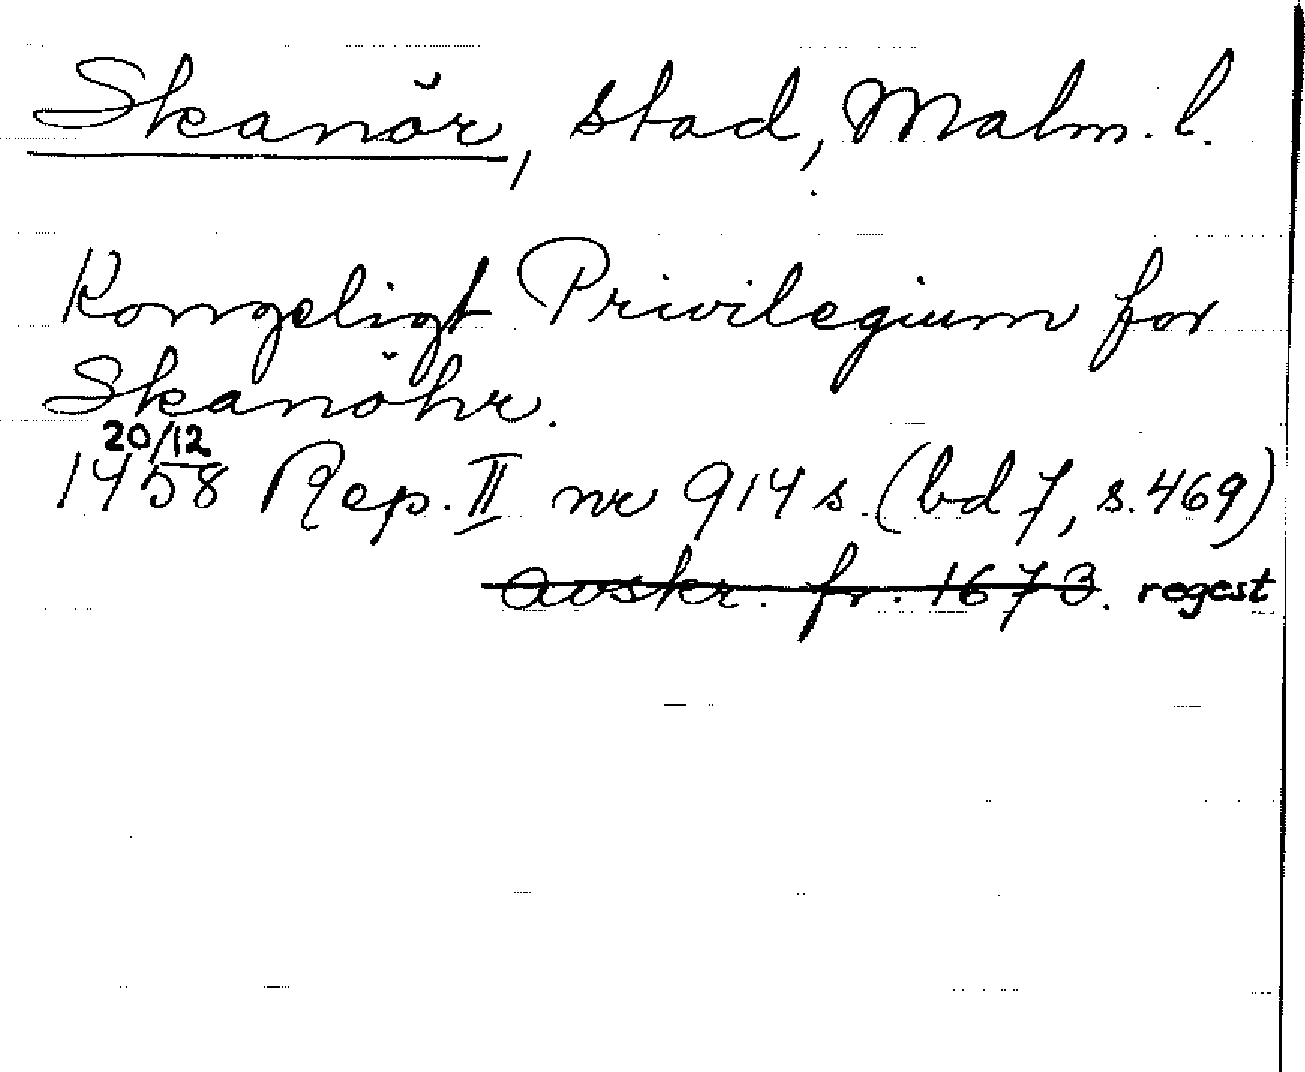 Skanör, stad, Malm. l.
Kongeligt Privilegium for
Skanöhr.
20/12
1458 Rep. II nr 914 s. (bd 7, s. 469)
avskr. fr. 1673. regest